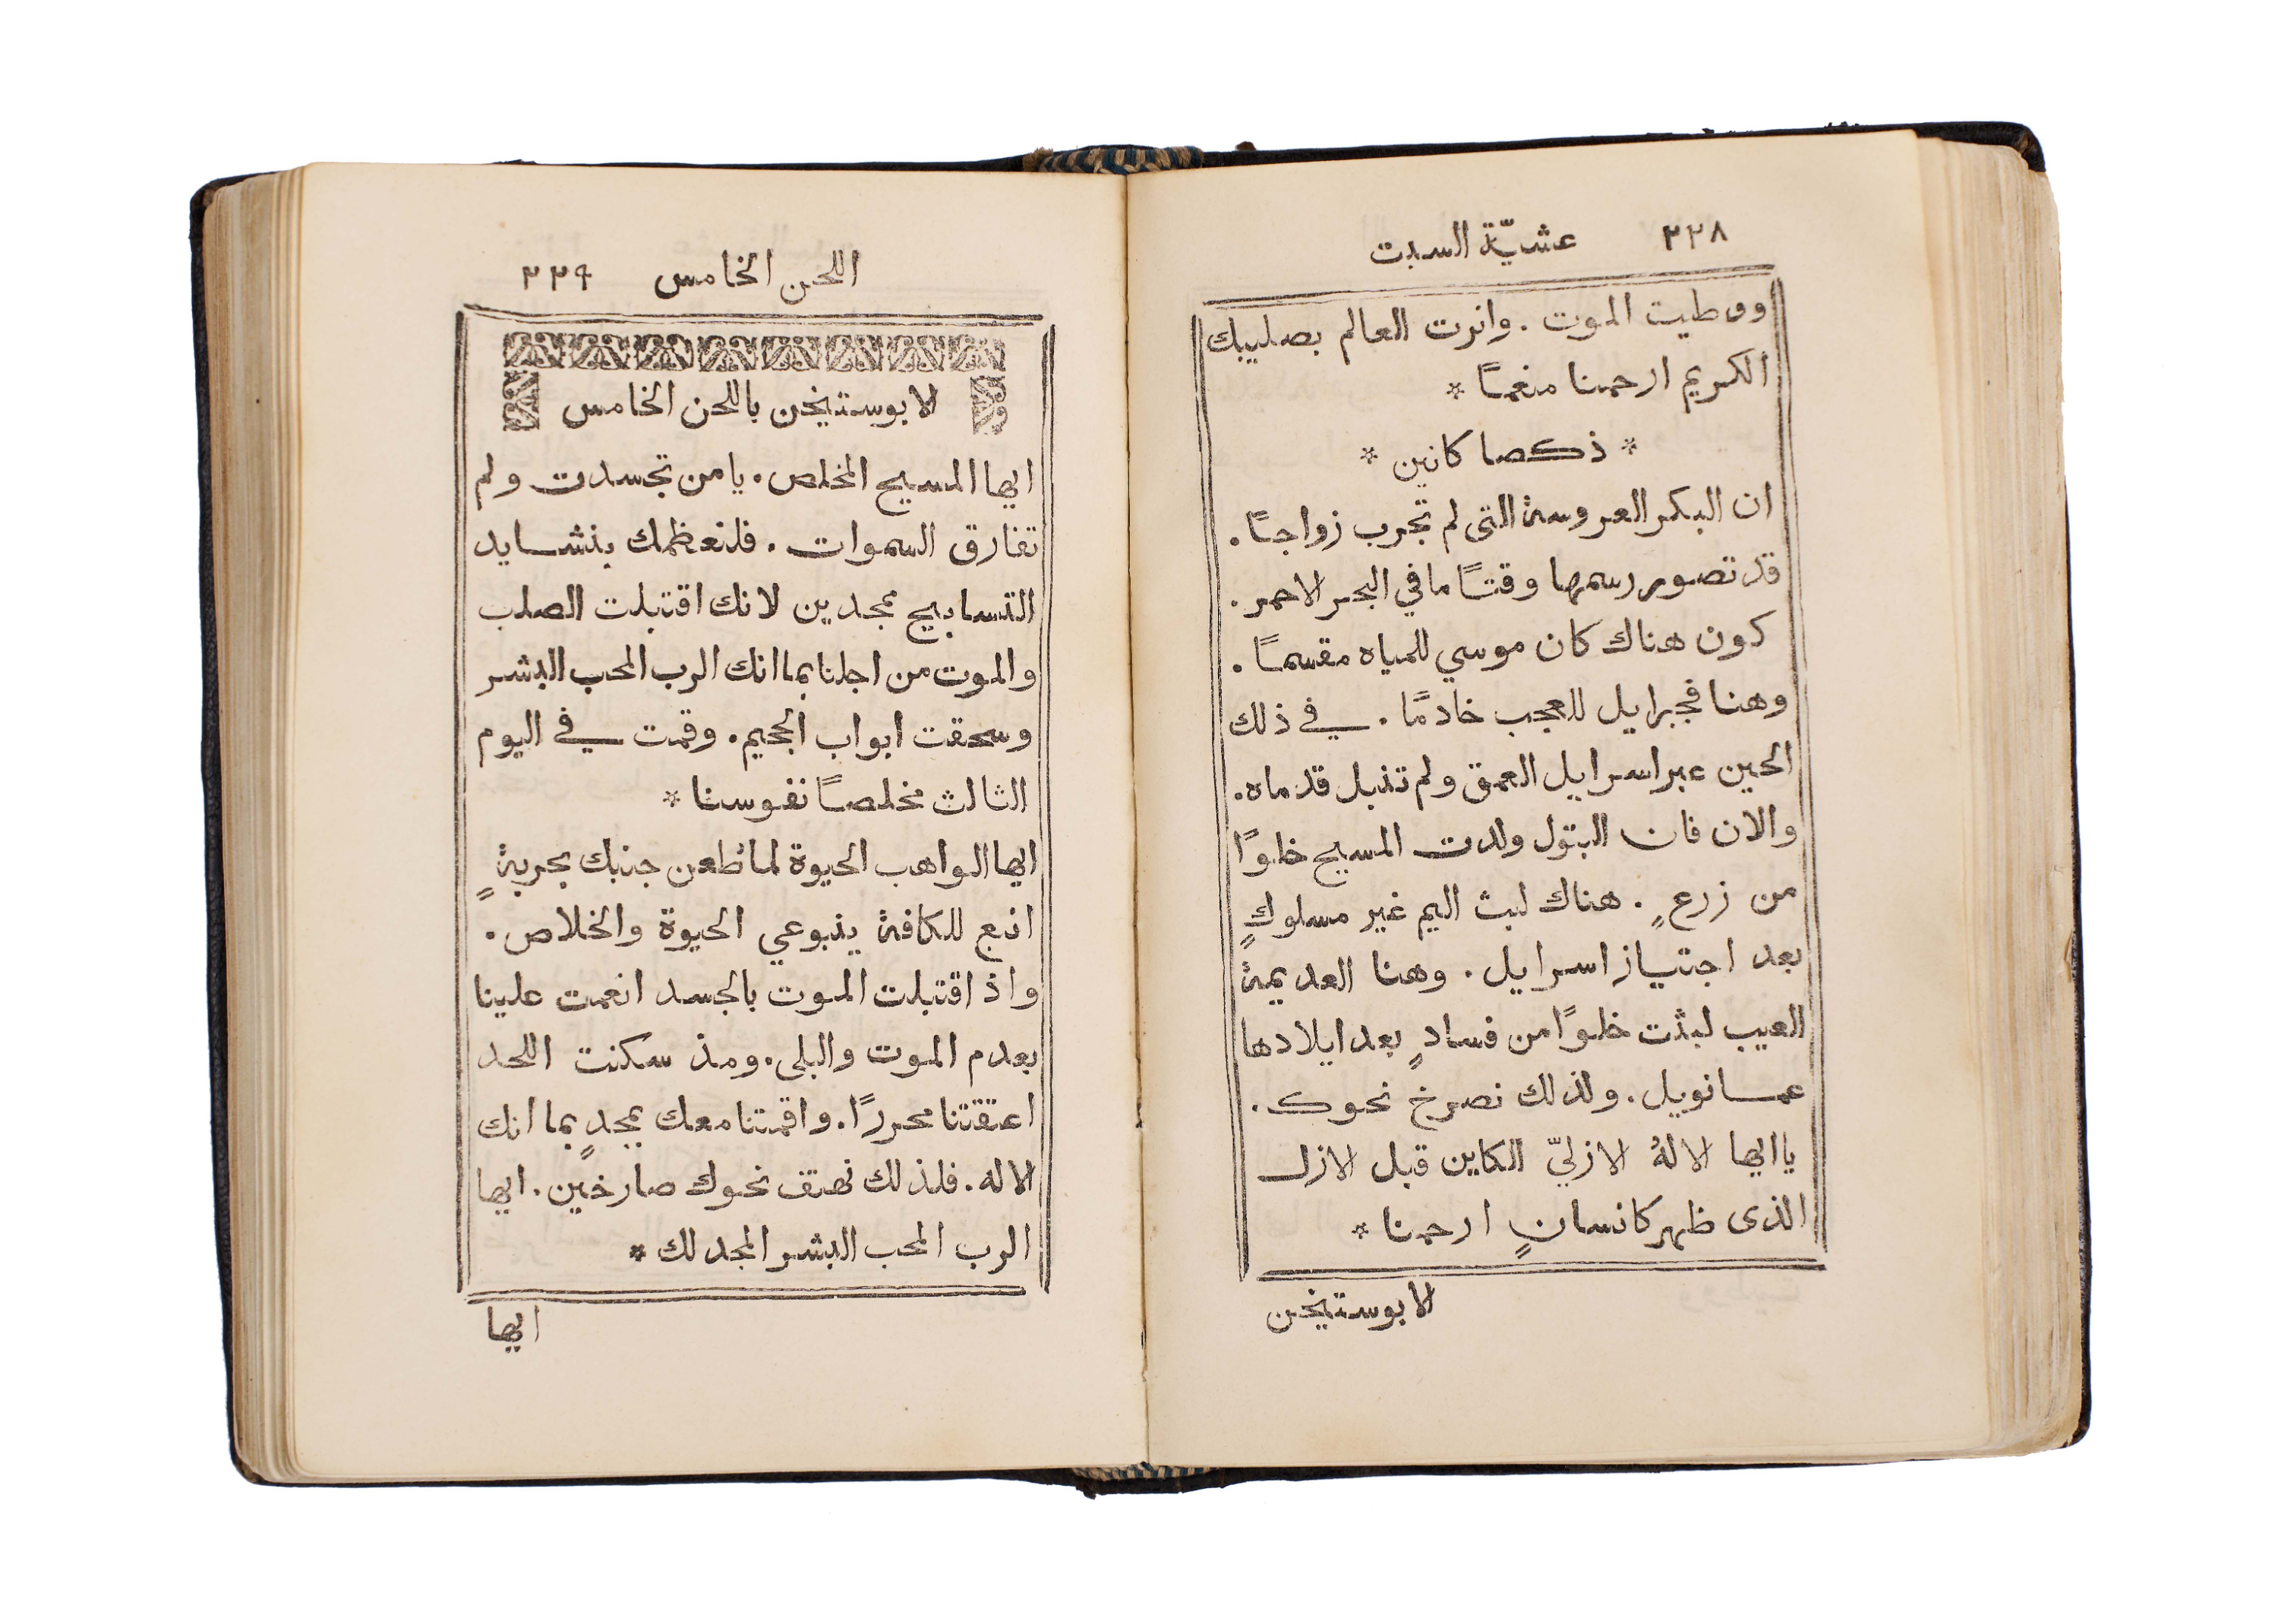 ٢٢٨ عشيّة السبت
ووطيت الموت . وانرت العالم بصليبك
الكريم ارحمنا منعمًا *
* ذكصا كانين *
ان البكر العروسة التى لم تجرب زواجًا .
قد تصور رسمها وقتًا ما في البحر الاحمر .
كون هناك كان موسي للمياه مقسمًا .
وهنا فجبرايل للعجب خادمًا . في ذلك
الحين عبر اسرايل العمق ولم تنبل قدماه .
والان فان البتول ولدت المسيح خلوًا
من زرعٍ . هناك لبث اليم غير مسلوكٍ
بعد اجتياز اسرايل . وهنا العديمة
العيب لبثت خلوًا من فسادٍ بعد ايلادها
عمانويل . ولذلك نصرخ نحوك .
يا ايها الالهُ الازليّ الكاين قبل الازل
الذى ظهر كانسانٍ ارحمنا *
الابوستيخن
اللحن الخامس ٢٢٩
الابوستيخن باللحن الخامس
ايها المسيح المخلص . يا من تجسدت ولم
تفارق السموات . فلنعظمك بنشايد
التسابيح ممجدين لانك اقتبلت الصلب
والموت من اجلنا بما انك الرب المحب البشر
وسحقت ابواب الجحيم . وقمت في اليوم
الثالث مخلصًا نفوسنا *
ايها الواهب الحيوة لما طُعن جنبك بحربةٍ
انبع للكافة ينبوعي الحيوة والخلاص .
واذ اقتبلت الموت بالجسد انعمت علينا
بعدم الموت والبلى . ومذ سكنت اللحد
اعتقتنا محررًا . واقمتنا معك بمجدٍ بما انك
الاله . فلذلك نهتف نحوك صارخين . ايها
الرب المحب البشر المجد لك *
ايها